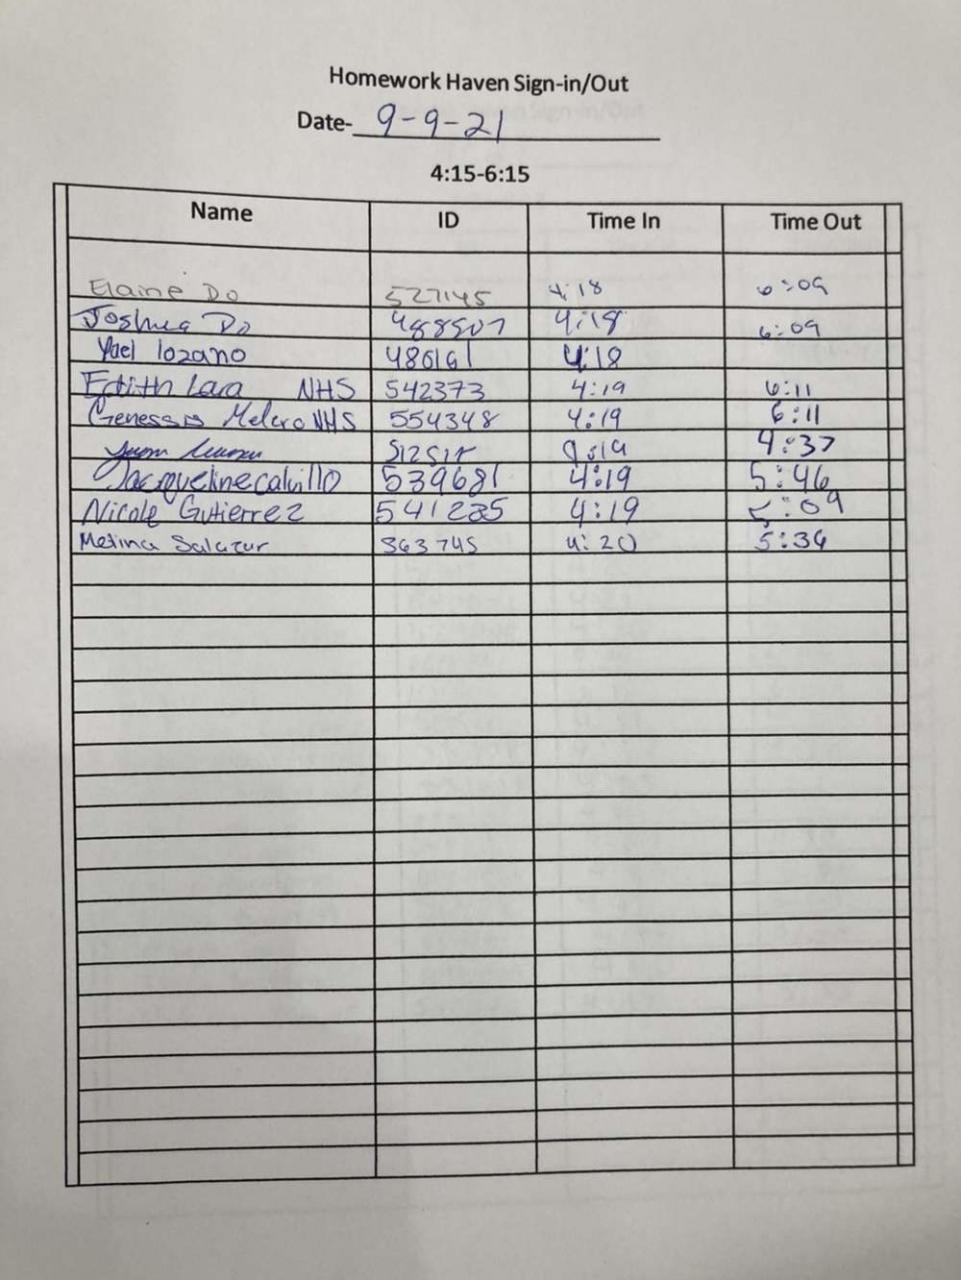 Homework Haven Sign-in/Out
Date- 9-9-21
4:15-6:15
Name ID Time In Time Out
Elaine Do 527145 4:18 6:09
Joshua Do 488507 4:18 6:09
Yael lozano 486161 4:18
Edith Lara NHS 542373 4:19 6:11
Genessis Melero NHS 554348 4:19 6:11
4:37
Jacqueline calvillo 539681 4:19 5:46
Nicole Gutierrez 541285 4:19 5:09
Melina Salazar 363745 4:20 5:36